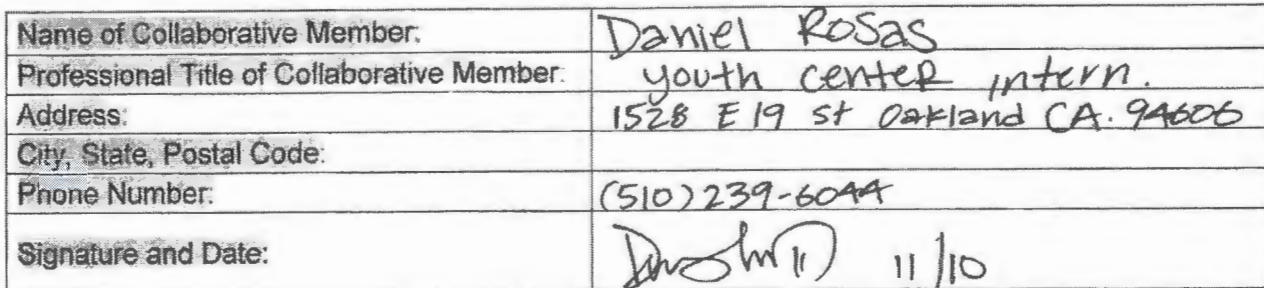 Name of Collaborative Member: Daniel Rosas
Professional Title of Collaborative Member: youth center intern.
Address: 1528 E 19 st Oakland CA. 94606
City, State, Postal Code:
Phone Number: (510) 239-6044
Signature and Date: 11/10